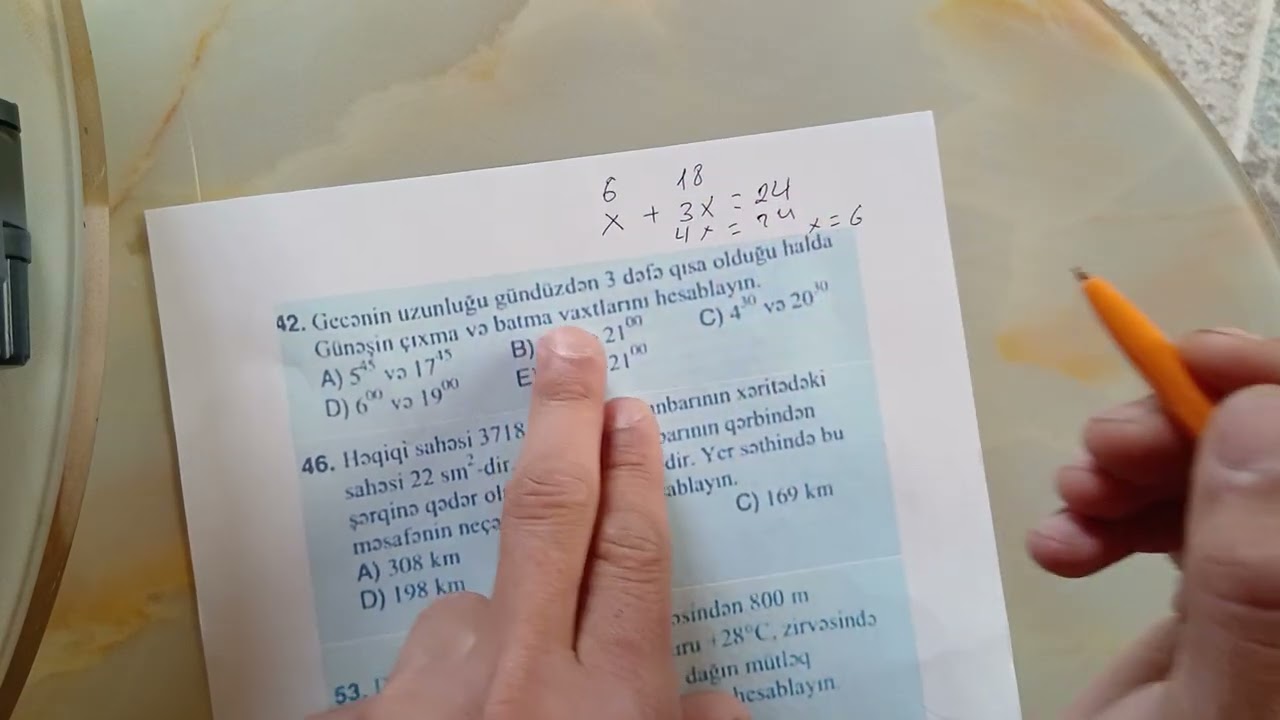 6 18
x + 3x = 24
4x = 24 x = 6
42. Gecənin uzunluğu gündüzdən 3 dəfə qısa olduğu halda
Günəşin çıxma və batma vaxtlarını hesablayın.
A) 5⁴⁵ və 17⁴⁵ B) 21⁰⁰ C) 4³⁰ və 20³⁰
D) 6⁰⁰ və 19⁰⁰ E) 21⁰⁰
46. Həqiqi sahəsi 3718 xəritədəki
sahəsi 22 sm²-dir. qərbindən
şərqinə qədər -dir. Yer səthində bu
məsafənin neçə
A) 308 km C) 169 km
D) 198 km
53. 800 m
+28°C, zirvəsində
dağın mütləq
hesablayın